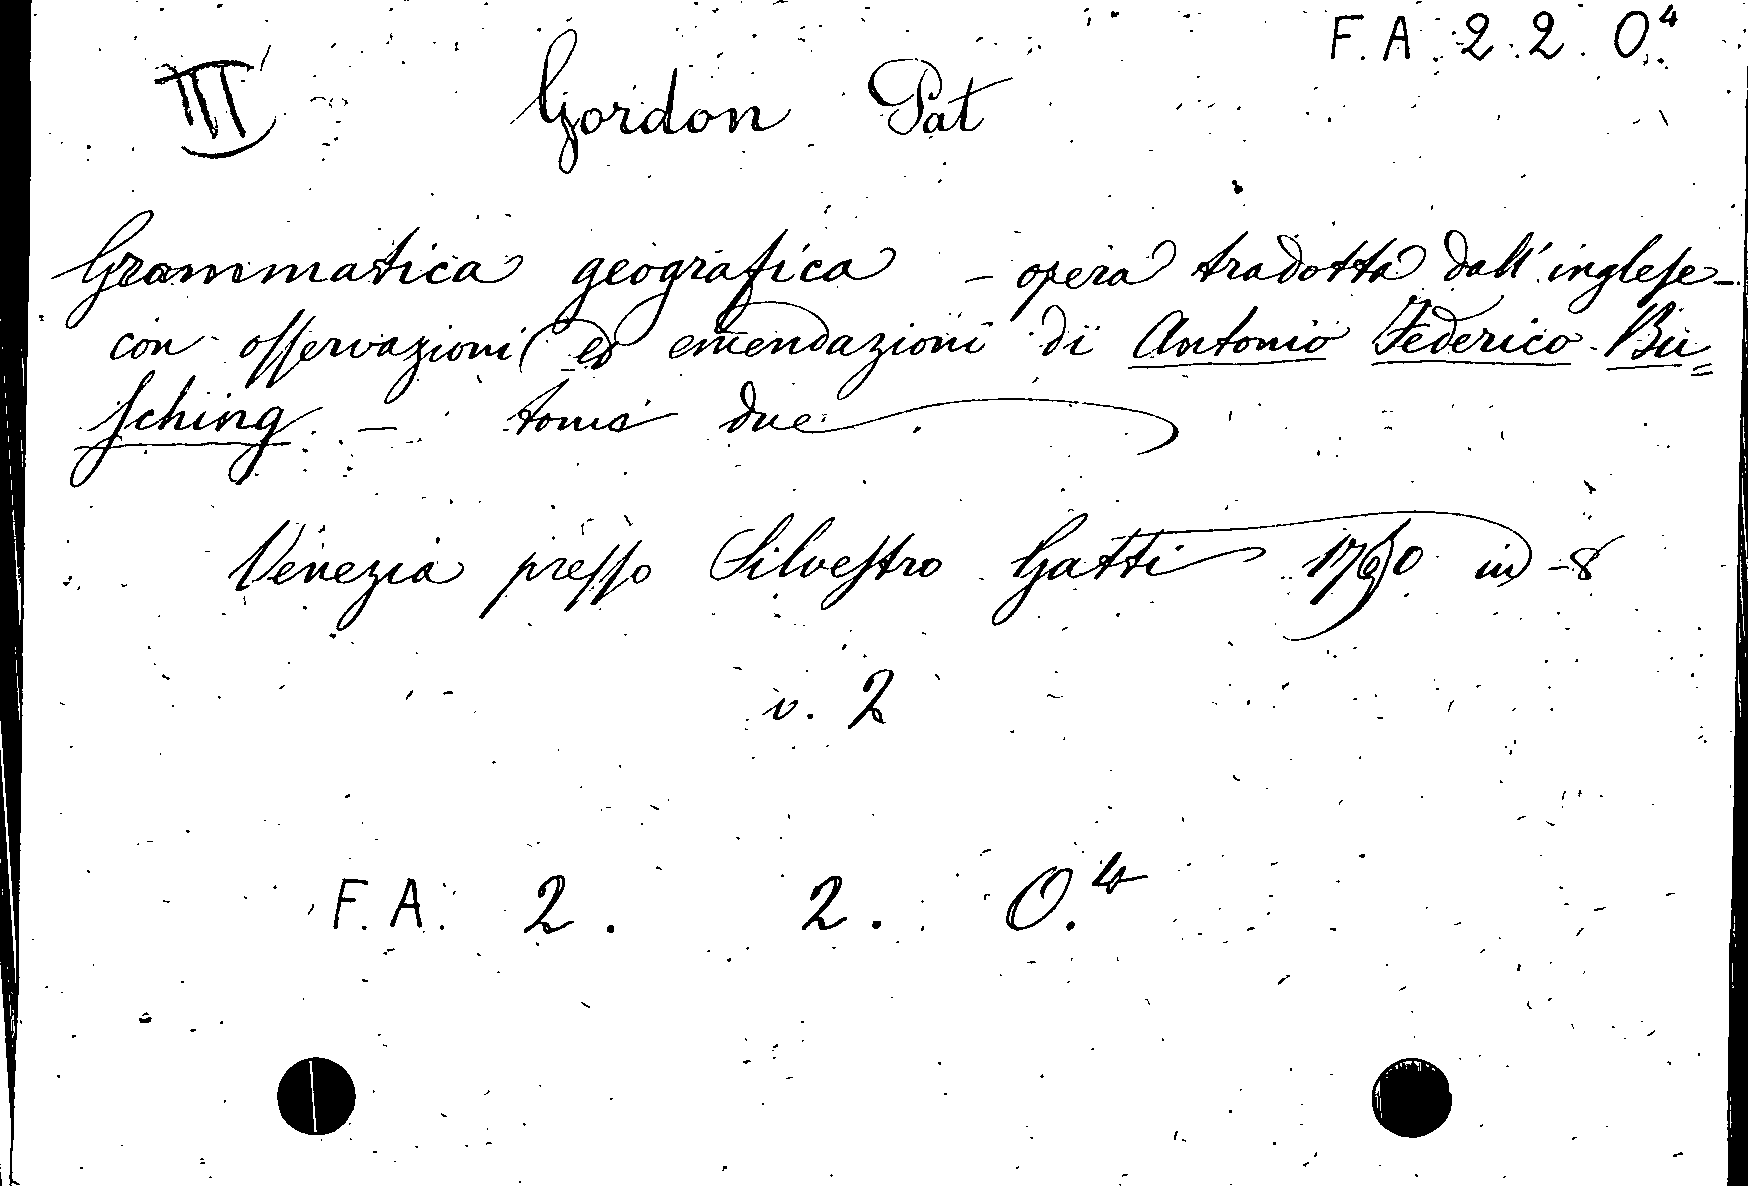 F. A. 2. 2. O.⁴
III Gordon Pat
Grammatica geografica – opera tradotta dall'inglese –
con osservazioni ed emendazioni di Antonio Federico Bü=
sching. – tomi due
Venezia presso Silvestro Gatti in-8
v. 2
F. A. 2. 2. O.⁴